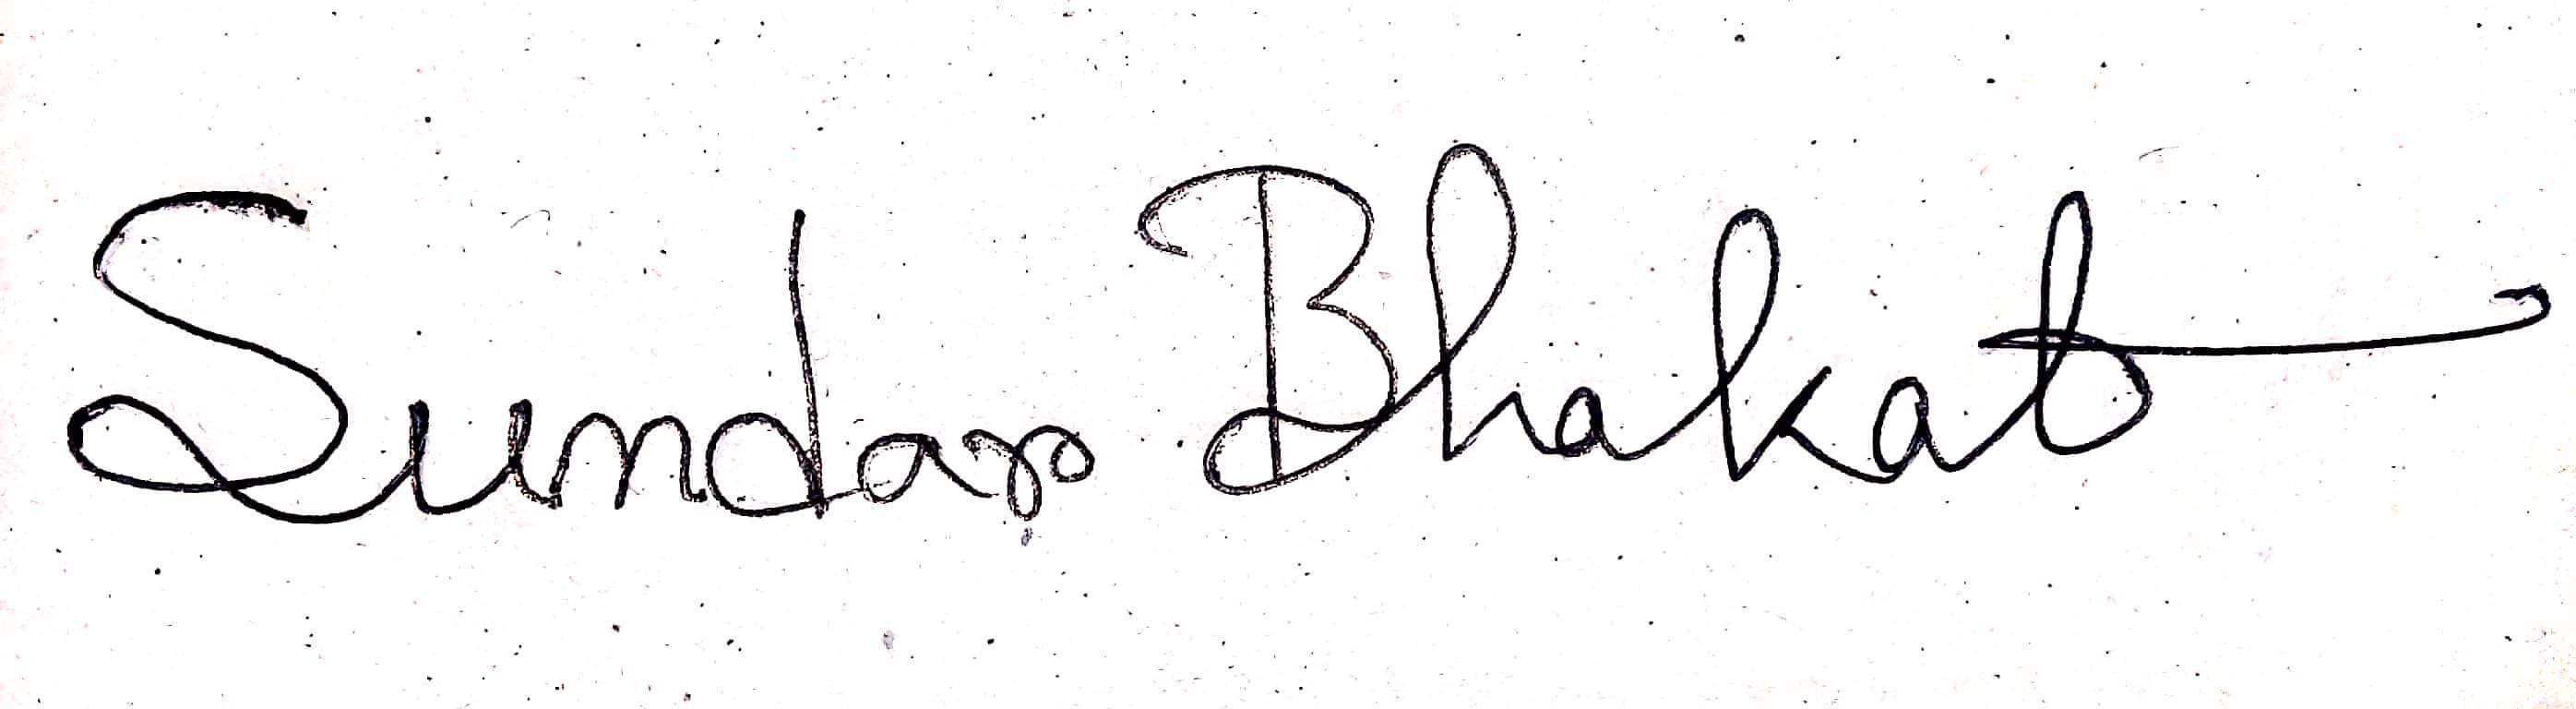 Sundar Bhakat